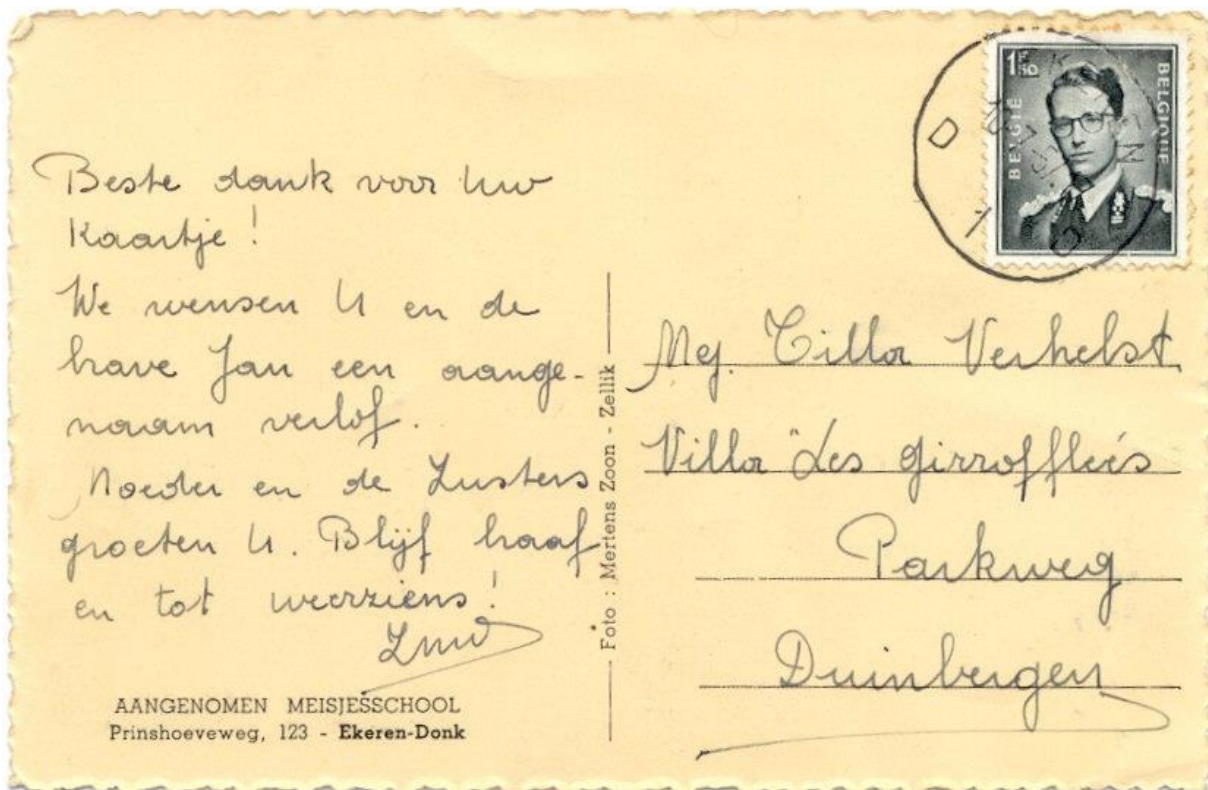 Beste dank voor Uw
Kaartje!
We wensen U en de
brave Jan een aange-
naam verlof.
Moeder en de Zusters
groeten U. Blijf braaf
en tot weerziens!
AANGENOMEN MEISJESSCHOOL
Prinshoeveweg, 123 - Ekeren-Donk
Foto : Mertens Zoon - Zellik
1F50
BELGIË
BELGIQUE
Mej. Tilla Verhelst
Villa "Les girrofflées
Parkweg
Duinbergen